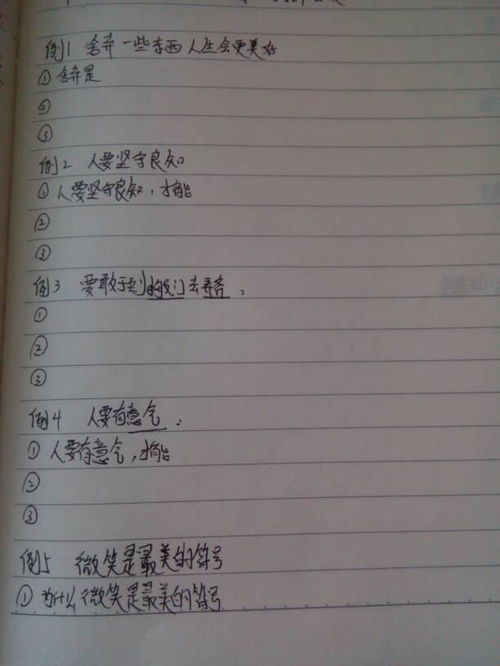 例1 舍弃一些东西人生会更美好
① 舍弃是
②
③
例2 人要坚守良知
① 人要坚守良知，才能
②
③
例3 要敢于到
①
②
③
例4 人要有意气：
① 人要有意气，才能
②
③
例5 微笑是最美的符号
① 为什么微笑是最美的符号